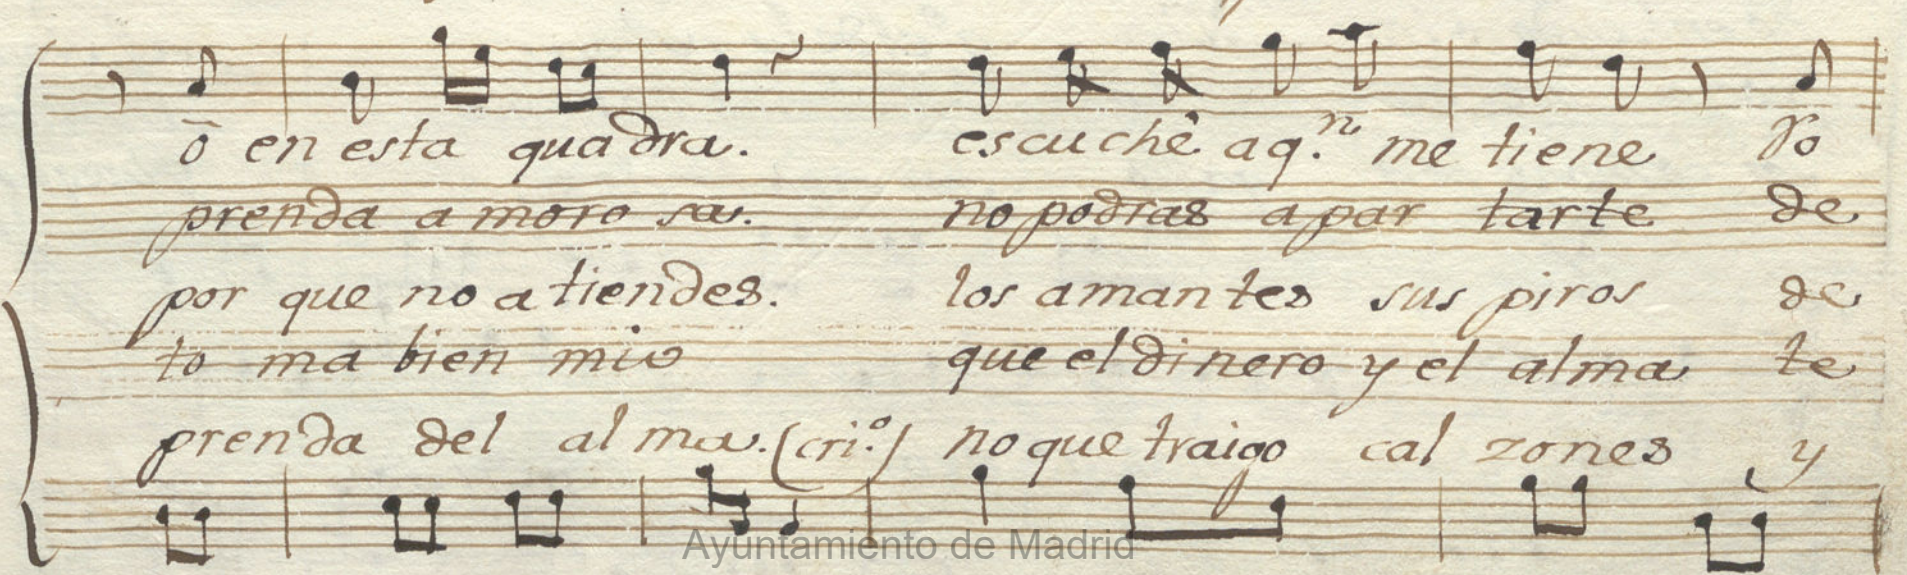 ō en esta quadra. escuchê aq.n me tiene Yo
prenda amorosa. no podras apartarte de
por que no atiendes. los amantes suspiros de
toma bien mio que el dinero y el alma te
prenda del alma. (cri.o) no que traigo calzones y
Ayuntamiento de Madrid